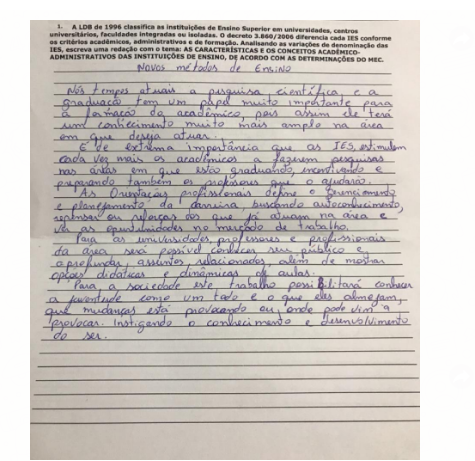 1. A LDB de 1996 classifica as instituições de Ensino Superior em universidades, centros
universitários, faculdades integradas ou isoladas. O decreto 3.860/2006 diferencia cada IES conforme
os critérios acadêmicos, administrativos e de formação. Analisando as variações de denominação das
IES, escreva uma redação com o tema: AS CARACTERÍSTICAS E OS CONCEITOS ACADÊMICO-
ADMINISTRATIVOS DAS INSTITUIÇÕES DE ENSINO, DE ACORDO COM AS DETERMINAÇÕES DO MEC.
Novos métodos de Ensino
Nós tempos atuais a pesquisa científica, e a
graduação tem um papel muito importante para
a formação do acadêmico, pois assim ele terá
um conhecimento muito mais amplo na área
em que deseja atuar.
É de extrema importância que as IES, estimulem
cada vez mais os acadêmicos a fazerem pesquisas
nas áreas em que estão graduando, incentivando e
preparando também os professores que o ajudarão.
As Orientações profissionais define o gerenciamento
e planejamento da carreira, buscando autoconhecimento,
repensar ou reforça dos que já atuam na área e
ver as oportunidades no mercado de trabalho.
Para as universidades, professores e profissionais
da área será possível conhecer seu público e
aprofundar, assuntos relacionados, além de mostrar
opções didáticas e dinâmicas de aulas.
Para, a sociedade este trabalho possibilitará conhecer
a juventude como um todo e o que eles almejam,
que mudanças está provocando ou, onde pode vim a
provocar. Instigando o conhecimento e desenvolvimento
do ser.